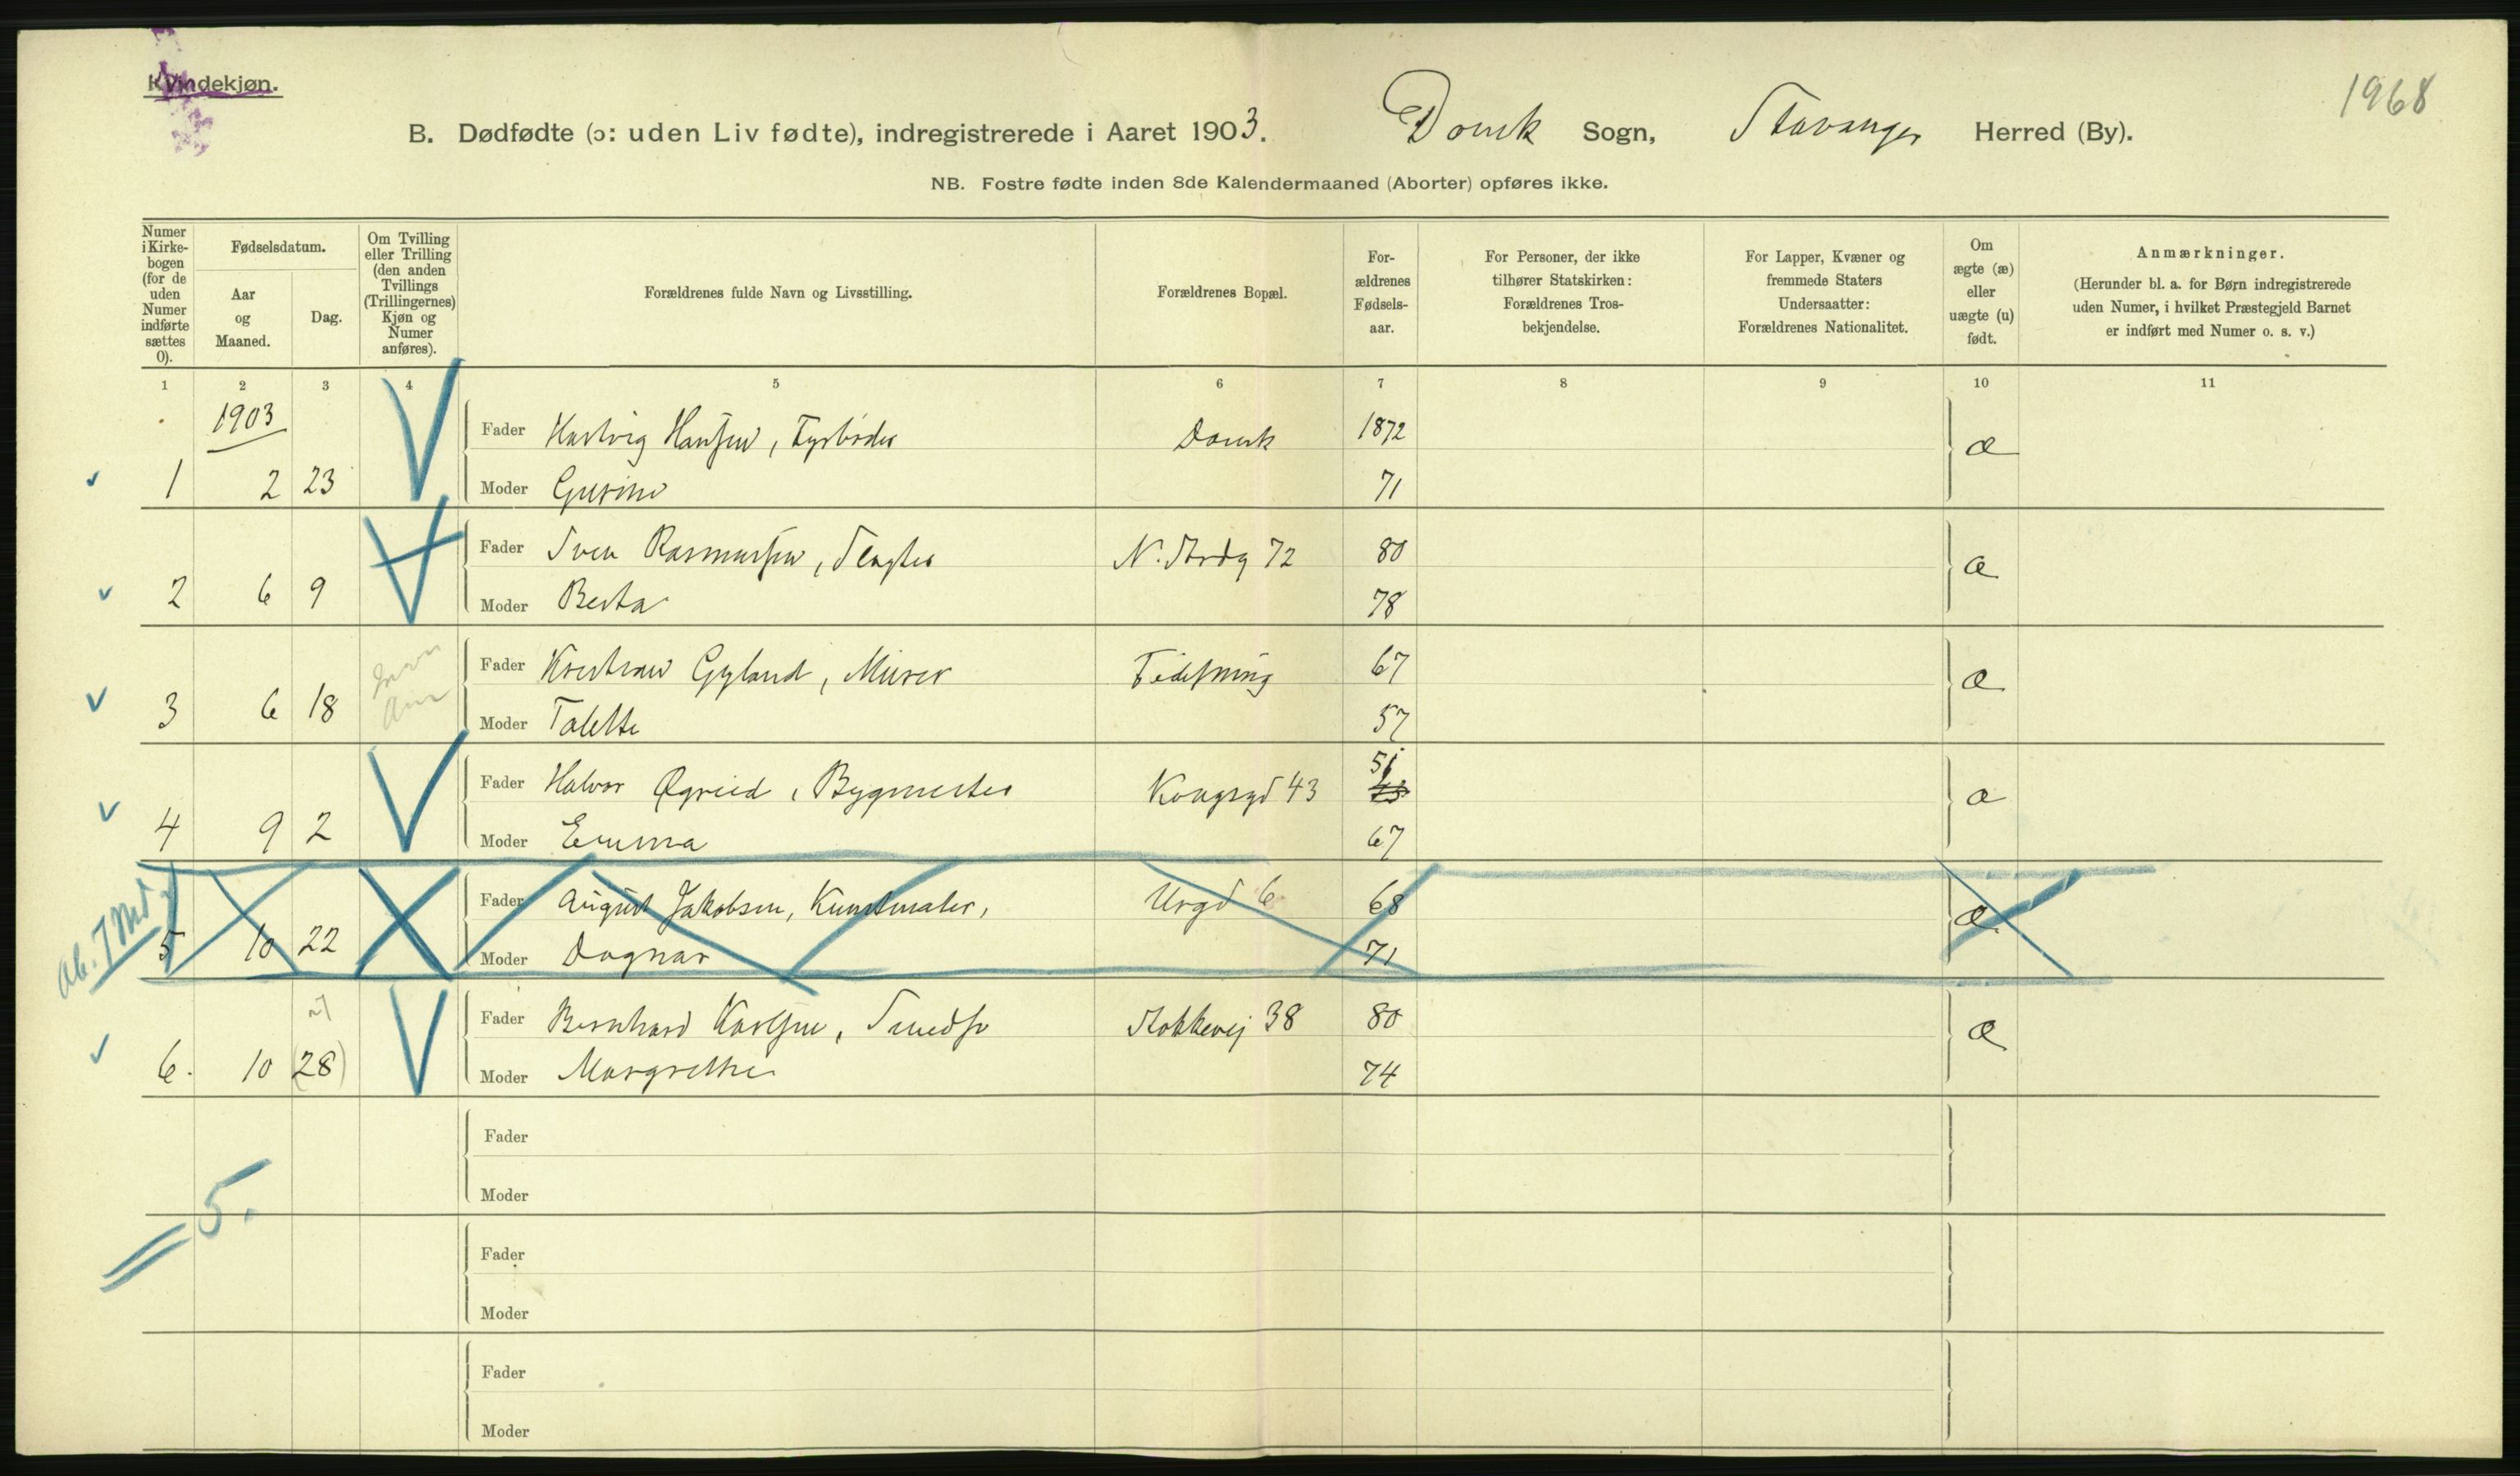 Kvindekjøn.
1968
B. Dødfødte (ɔ: uden Liv fødte), indregistrerede i Aaret 1903. Domk Sogn, Stavanger Herred (By).
NB. Fostre fødte inden 8de Kalendermaaned (Aborter) opføres ikke.
Numer i Kirke-bogen (for de uden Numer indførte sættes 0).
Fødselsdatum.
Aar og Maaned.
Dag.
Om Tvilling eller Trilling (den anden Tvillings (Trillingernes) Kjøn og Numer anføres).
Forældrenes fulde Navn og Livsstilling.
Forældrenes Bopæl.
For-ældrenes Fødsels-aar.
For Personer, der ikke tilhører Statskirken: Forældrenes Tros-bekjendelse.
For Lapper, Kvæner og fremmede Staters Undersaatter: Forældrenes Nationalitet.
Om ægte (æ) eller uægte (u) født.
Anmærkninger.
(Herunder bl. a. for Børn indregistrerede uden Numer, i hvilket Præstegjeld Barnet er indført med Numer o. s. v.)
1 2 3 4 5 6 7 8 9 10 11
1903
Fader Hartvig Hansen, Fyrbøder Domk 1872 æ
1 2 23 Moder Gurine 71
Fader Sven Rasmussen, Slagter N. Strdg 72 80 æ
2 6 9 Moder Berta 78
Fader Kristian Gyland, Murer 67 æ
3 6 18 Moder Talette 57
Fader Halvor Øgreid, Bygmester Kongsgd 43 51 æ
4 9 2 Moder Emma 67
Ab. 7 Md.
Fader August Jakobsen, Kunstmaler, Urgd 6 68 æ.
5 10 22 Moder Dagmar 71
Fader Bernhard Karlsen, Smedsv Stokkevej 38 80 æ
6. 10 (28) Moder Margrethe 74
Fader
Moder
5.
Fader
Moder
Fader
Moder